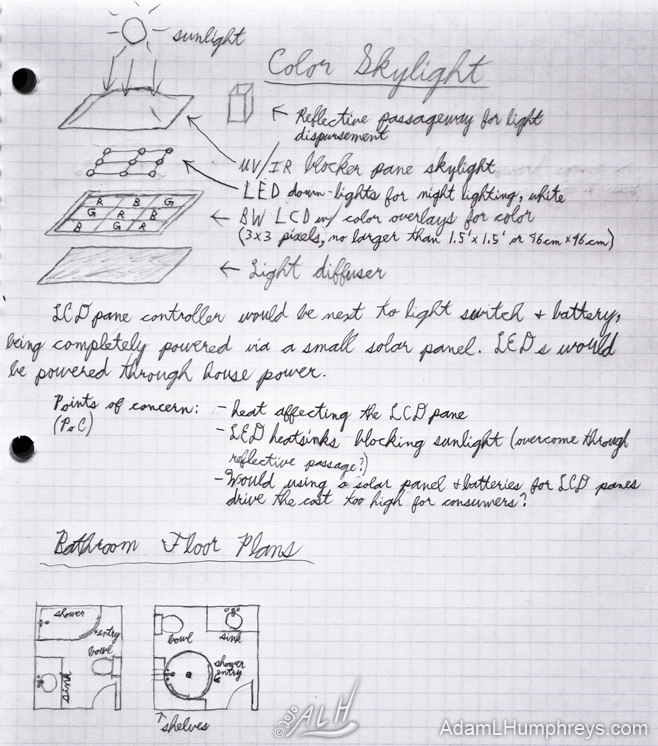 sunlight
Color Skylight
← Reflective passageway for light
dispursement
UV/IR blocker pane skylight
LED down-lights for night lighting, white
← BW LCD w/ color overlays for color
(3x3 pixels, no larger than 1.5'x1.5' or 46cm x 46cm)
R B G
G R B
B G R
← Light diffuser
LCD pane controller would be next to light switch + battery,
being completely powered via a small solar panel. LEDs would
be powered through house power.
Points of concern: - heat affecting the LCD pane
(PoC)
- LED heatsinks blocking sunlight (overcome through
reflective passage?)
- Would using a solar panel + batteries for LCD panes
drive the cost too high for consumers?
Bathroom Floor Plans
shower
entry
bowl
sink
bowl
sink
shower
entry
shelves
ALH
AdamLHumphreys.com